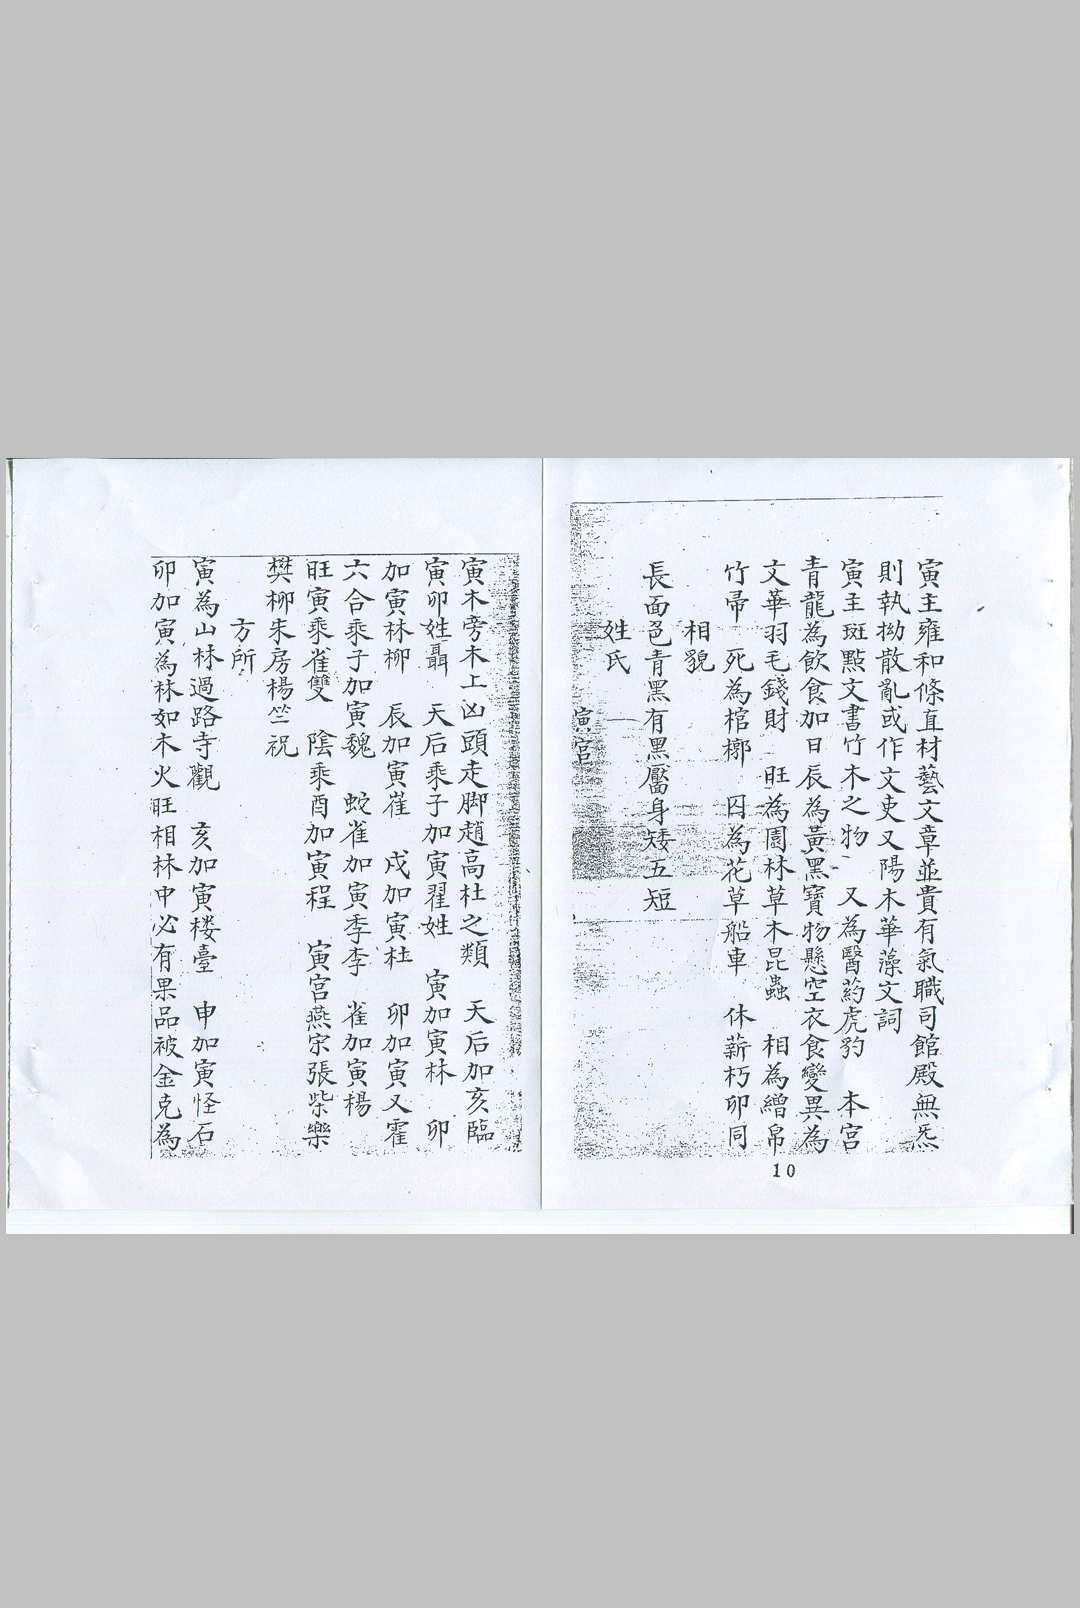 寅主雍和條直材藝文章並貴有氣職司館殿無炁
則執拗散亂或作文吏又陽木華藻文詞
寅主斑點文書竹木之物　又為醫药虎豹　本宮
青龍為飲食加日辰為黃黑寶物懸空衣食變異為
文華羽毛錢財　旺為園林草木昆蟲　相為繒帛
竹帚　死為棺槨　囚為花草船車　休薪朽卯同
相貌
長面色青黑有黑靨身矮五短
姓氏
寅宮
10
寅木旁木上凶頭走脚趙高杜之類　天后加亥臨
寅卯姓聶　天后乘子加寅翟姓　寅加寅林　卯
加寅林柳　辰加寅崔　戌加寅杜　卯加寅又霍
六合乘子加寅魏　蛇雀加寅季李　雀加寅楊
旺寅乘雀雙　陰乘酉加寅程　寅宮燕宗張柴樂
樊柳朱房楊竺祝
方所
寅為山林過路寺觀　亥加寅楼臺　申加寅怪石
卯加寅為林如木火旺相林中必有果品被金克為